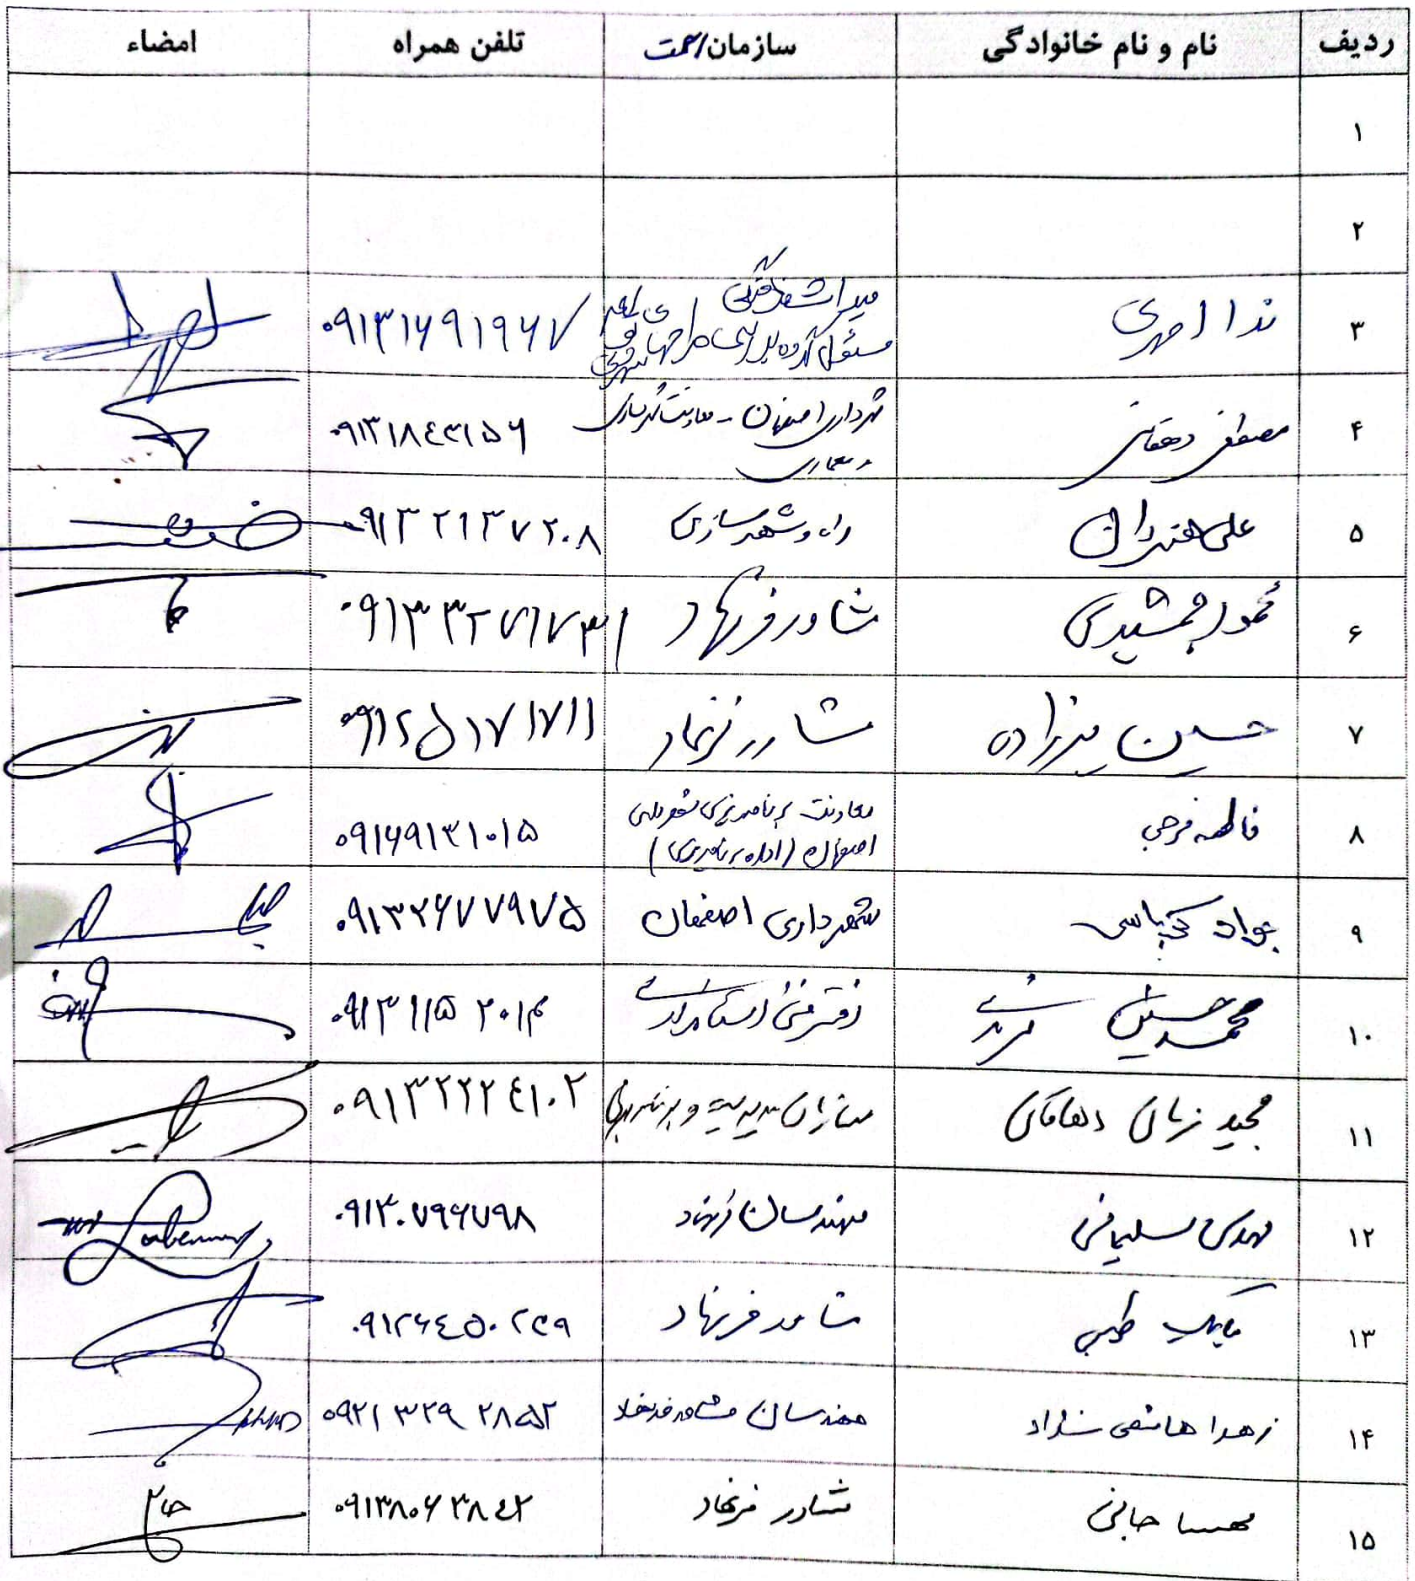 ردیف نام و نام خانوادگی سازمان/سمت تلفن همراه امضاء
۱
۲
۳ ندا احمدی میراث فرهنگی ۰۹۱۳۱۶۹۱۹۶۷
مسئول گروه بررسی طرحهای
۴ مصطفی دهقانی شهرداری اصفهان - معاونت شهرسازی ۰۹۱۳۱۸۴۳۱۵۶
و معماری
۵ علی هنردان راه و شهرسازی ۰۹۱۳۲۱۳۷۲۰۸
۶ محمود جمشیدی مشاور فرنهاد ۰۹۱۳۳۲۷۱۷۳۱
۷ حسین میرزاده مشاور فرنهاد ۰۹۱۲۵۱۷۱۷۱۱
۸ فاطمه فرجی معاونت برنامه‌ریزی شهرداری ۰۹۱۶۹۱۳۱۰۱۵
اصفهان (اداره برنامه‌ریزی)
۹ جواد کرباسی شهرداری اصفهان ۰۹۱۳۲۶۷۷۹۷۵
۱۰ محمد حسین دفتر فنی استانداری ۰۹۱۳۱۱۵۲۰۱۴
۱۱ مجید زمانی دهاقانی سازمان مدیریت و برنامه‌ریزی ۰۹۱۳۲۲۲۴۱۰۲
۱۲ مهدی سلیمانی مهندسان فرنهاد ۰۹۱۳۰۷۹۶۷۹۸
۱۳ بابک طبیبی مشاور فرنهاد ۰۹۱۲۶۴۵۰۲۳۹
۱۴ زهرا هاشمی نژاد مهندسان مشاور فرنهاد ۰۹۲۱۳۲۹۲۸۵۲
۱۵ مهسا جانی مشاور فرنهاد ۰۹۱۳۸۰۶۳۸۴۲